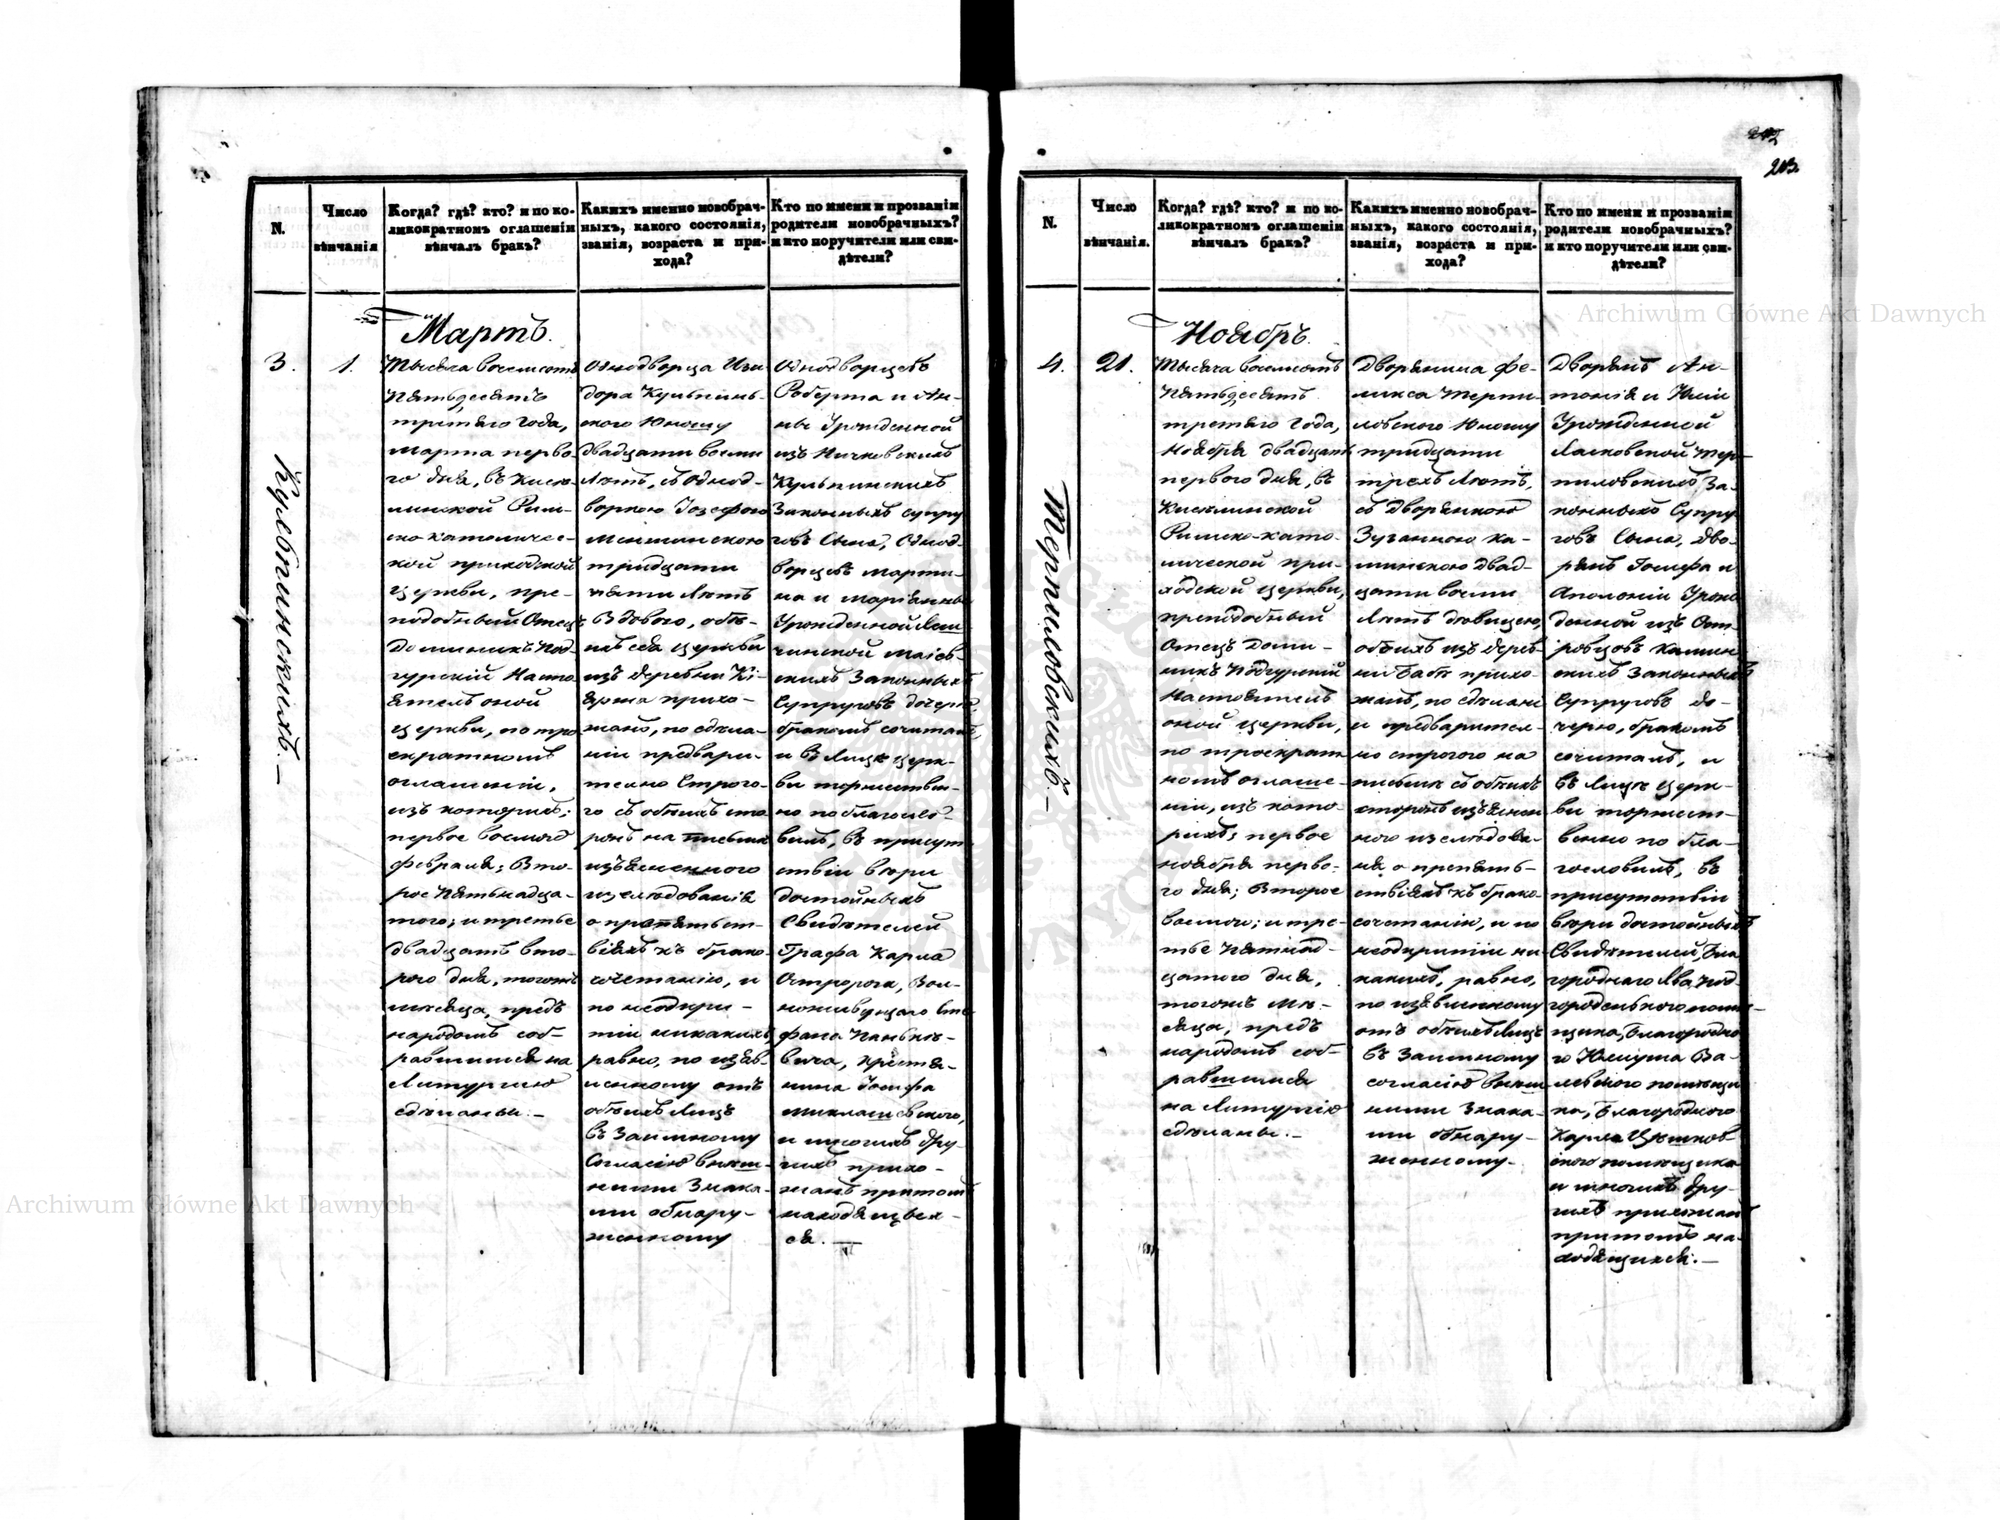 203
N.
Число
вѣнчанія
Когда? гдѣ? кто? и по ко-
ликократномъ оглашеніи
вѣнчалъ бракъ?
Какихъ именно новобрач-
ныхъ, какого состоянія,
званія, возраста и при-
хода?
Кто по имени и прозванію
родители новобрачныхъ?
и кто поручители или сви-
дѣтели?
Мартъ.
3.
1.
Кульпинскихъ.—
Тысяча восемсотъ
пятьдесятъ
третьяго года,
Марта перво
го дня, въ Кисе
линской Рим-
ско католичес-
кой приходской
церкви, пре-
подобный Отецъ
Доминикъ Под-
гурскій Насто
ятель оной
церкви, по тро
екратномъ
оглашеніи,
изъ которихъ;
первое восмого
февраля; Вто-
рое пятьнадца-
того; и третье
двадцать вто-
рого дня, тогожъ
мѣсяца, предъ
народомъ соб-
равшимся на
Литургію
сдѣланы.—
Однодворца Изи
дора Кульпинь-
ского Юношу
двадцати восми
лѣтъ, съ Однод-
воркою Іозефою
тридцати
пяти лѣтъ
Вдовою, обо-
ихъ сея церкви
изъ деревни
прихо-
жанъ, по сдѣла-
ніи предвари-
телно Строго-
го съ обѣихъ сто
ронъ на письмѣ
изъясненного
изслѣдованія
о препятьст-
віяхъ къ брако-
сочетанію, и
по неодкри-
тіи никакихъ
равно, по изяв-
ленному отъ
обѣихъ Лицъ
въ Заимному
Согласію внѣш-
ними Знака-
ми обнару-
женному
Однодворцевъ
Роберта и Ан-
ны Урожденной
изъ Ничковскихъ
Кульпинскихъ
Законныхъ супру
говъ Сына, Однод-
ворцевъ Марти-
на и Маріанны
Урожденной
Законныхъ
Супруговъ дочерью
бракомъ сочеталъ,
и въ Лицѣ церк-
ви торжествен-
но поблагосло-
вилъ, въ присут
ствіи вѣри
достойныхъ
Свидѣтелей
Графа Карла
Остророга, Вол-
ноживущаго Сте
фана
вича, крестя-
нина Іосифа
и многихъ дру-
гихъ прихо-
жанъ притомъ
находящихъ-
ся.—
N.
Число
вѣнчанія.
Когда? гдѣ? кто? и по ко-
ликократномъ оглашеніи
вѣнчалъ бракъ?
Какихъ именно новобрач-
ныхъ, какого состоянія,
званія, возраста и при-
хода?
Кто по имени и прозванію
родители новобрачныхъ?
и кто поручители или сви-
дѣтели?
Ноябрь.
4.
21.
Терпиловскихъ.—
Тысяча восемсотъ
пятьдесятъ
третьяго года,
Ноября двадцать
первого дня, въ
Киселинской
Римско-като-
лической при-
ходской церкви,
преподобный
Отецъ Доми-
никъ Подгурскій
Настоятель
оной церкви,
по троекрат
номъ оглаше-
ніи, изъ кото-
рихъ; первое
ноября перво-
го дня; Второе
восмого; и тре-
тье пятнад-
цатого дня,
тогожъ мѣ-
сяца, предъ
народомъ соб-
равшимся
на Литургію
сдѣланы.—
Дворянина Фе-
ликса Терпи-
ловского Юношу
тридцати
трехъ лѣтъ,
съ Дворянкою
Зузанною Ка-
минскою двад-
цати восми
лѣтъ дѣвицею,
обоихъ изъ дерев
ни прихо-
жанъ, по сдѣланіи
и предварител-
но строгого на
письмѣ съ обѣихъ
сторонъ изъяснен
ного изслѣдова-
ня о препять-
ствіяхъ къ брако-
сочетанію, и по
неодкритіи ни
какихъ, равно,
по изявленному
отъ обѣихъ Лицъ
въ Заимному
согласію внѣш-
ними Знака-
ми обнару-
женному.
Дворянъ Ан-
тонія и Юліи
Урожденной
Ласковской Тер-
пиловскихъ, За-
конныхъ Супру
говъ Сына, Дво-
рянъ Іосифа и
Аполоніи Урож
денной изъ Ост-
ровцовъ Камин
скихъ Законныхъ
Супруговъ до-
черью, бракомъ
сочеталъ, и
въ Лицѣ церк-
ви торжест-
венно по бла-
гословилъ, въ
присутствіи
вѣри достойныхъ
Свидѣтелей, Бла
городнаго Льва Под
помѣ-
щика, Благородно
го За-
левского помѣщи
ка, Благородного
Карла
ского помѣщика
и многихъ дру-
гихъ прихожанъ
притомъ на-
ходящихся.—
Archiwum Główne Akt Dawnych
Archiwum Główne Akt Dawnych